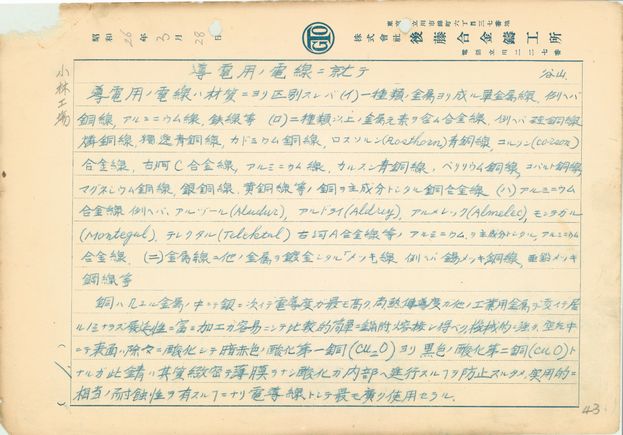 東京都立川市錦町六丁目三七番地
株式會社 後藤合金鑄工所
電話立川二二二七番
GTO
昭和26年3月28日
小林工場
導電用ノ電線ニ就テ
谷山
導電用ノ電線ハ材質ニヨリ区別スレバ(イ)一種類ノ金属ヨリ成ル單金属線、例ヘバ
銅線、アルミニウム線、鉄線等 (ロ)二種類以上ノ金属元素ヲ含ム合金線、例ヘバ 硅銅線
燐銅線、獨逸青銅線、カドミウム銅線、ロスソルン(Rosthorn)青銅線、コルソン(corson)
合金線、古河C合金線、アルミニウム線、カルスン青銅線、ベリリウム銅線、コバルト銅線
マグネシウム銅線、銀銅線、黄銅線等ノ銅ヲ主成分トシタル銅合金線 (ハ)アルミニウム
合金線 例ヘバ、アルヅール(Aludur)、アルドライ(Aldrey)、アルメレック(Almelec)、モンテガル
(Montegal)、テレクタル(Telectal) 古河A合金線等ノアルミニウムヲ主成分トシタル、アルミニウム
合金線、(ニ)金属線ニ他ノ金属ヲ鍍金シタルメッキ線 例ヘバ 錫メッキ銅線、亜鉛メッキ
鋼線等
銅ハ凡ユル金属ノ中ニテ銀ニ次イデ電導度ガ最モ高ク尚熱傳導度ガ他ノ工業用金属ヲ凌イデ居
ルノミナラズ展延性ニ富ミ加工ガ容易ニシテ比較的簡單ニ鑞附熔接シ得ベク機械的ニ強ク空気中
ニテ表面ハ除々ニ酸化シテ暗赤色ノ酸化第一銅(Cu2O)ヨリ黒色ノ酸化第二銅(CuO)ト
ナルガ此錆ハ其質緻密デ薄膜ヲナシ酸化ガ内部ヘ進行スルヲ防止スルタメ、実用的ニ
相当ノ耐蝕性ヲ有スルヿニナリ電導線トシテ最モ廣ク使用セラル.
43